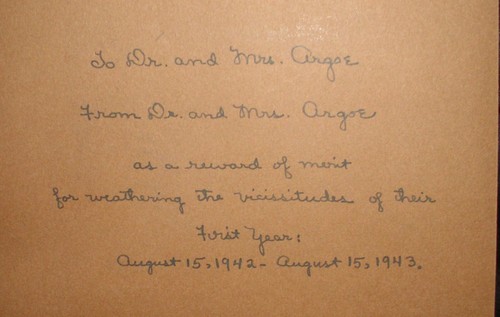 To Dr. and Mrs. Argoe
From Dr. and Mrs. Argoe
as a reward of merit
for weathering the vicissitudes of their
First Year:
August 15, 1942 - August 15, 1943.